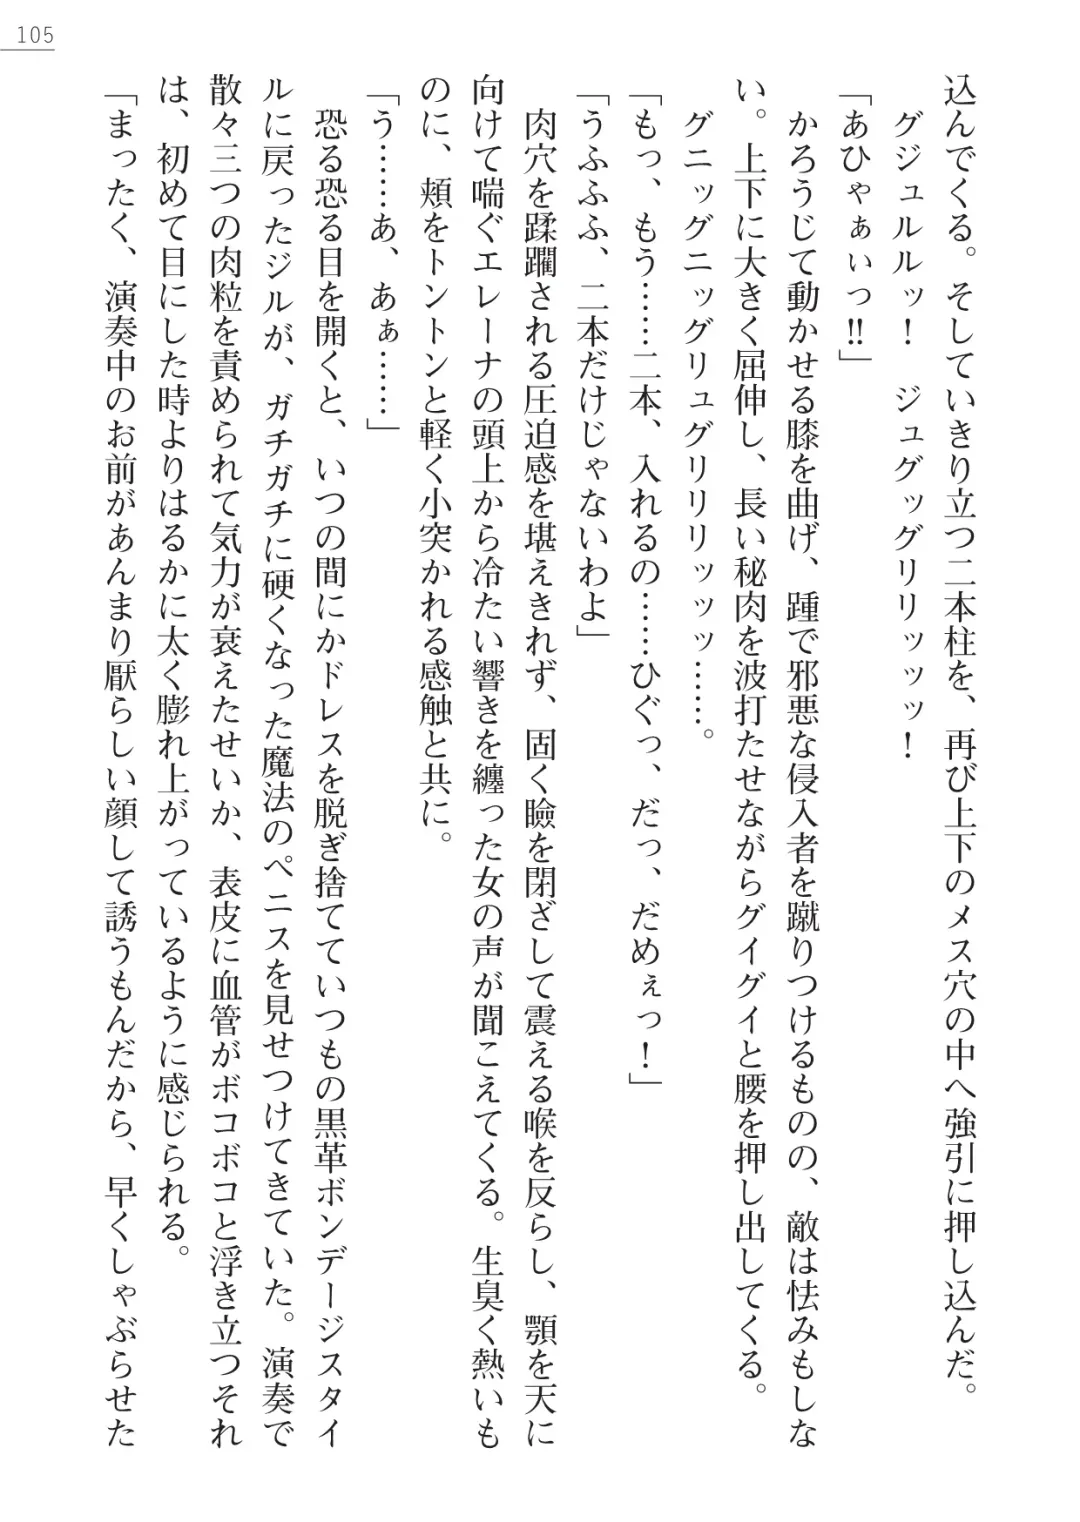 105
込んでくる。そしていきり立つ二本柱を、再び上下のメス穴の中へ強引に押し込んだ。
グジュルルッ！　ジュグッグリリッッッ！
「あひゃぁぃっ‼」
かろうじて動かせる膝を曲げ、踵で邪悪な侵入者を蹴りつけるものの、敵は怯みもしな
い。上下に大きく屈伸し、長い秘肉を波打たせながらグイグイと腰を押し出してくる。
グニッグニッグリュグリリリッッッ……。
「もっ、もう……二本、入れるの……ひぐっ、だっ、だめぇっ！」
「うふふふ、二本だけじゃないわよ」
肉穴を蹂躙される圧迫感を堪えきれず、固く瞼を閉ざして震える喉を反らし、顎を天に
向けて喘ぐエレーナの頭上から冷たい響きを纏った女の声が聞こえてくる。生臭く熱いも
のに、頬をトントンと軽く小突かれる感触と共に。
「う……あ、あぁ……」
恐る恐る目を開くと、いつの間にかドレスを脱ぎ捨てていつもの黒革ボンデージスタイ
ルに戻ったジルが、ガチガチに硬くなった魔法のペニスを見せつけてきていた。演奏で
散々三つの肉粒を責められて気力が衰えたせいか、表皮に血管がボコボコと浮き立つそれ
は、初めて目にした時よりはるかに太く膨れ上がっているように感じられる。
「まったく、演奏中のお前があんまり厭らしい顔して誘うもんだから、早くしゃぶらせた